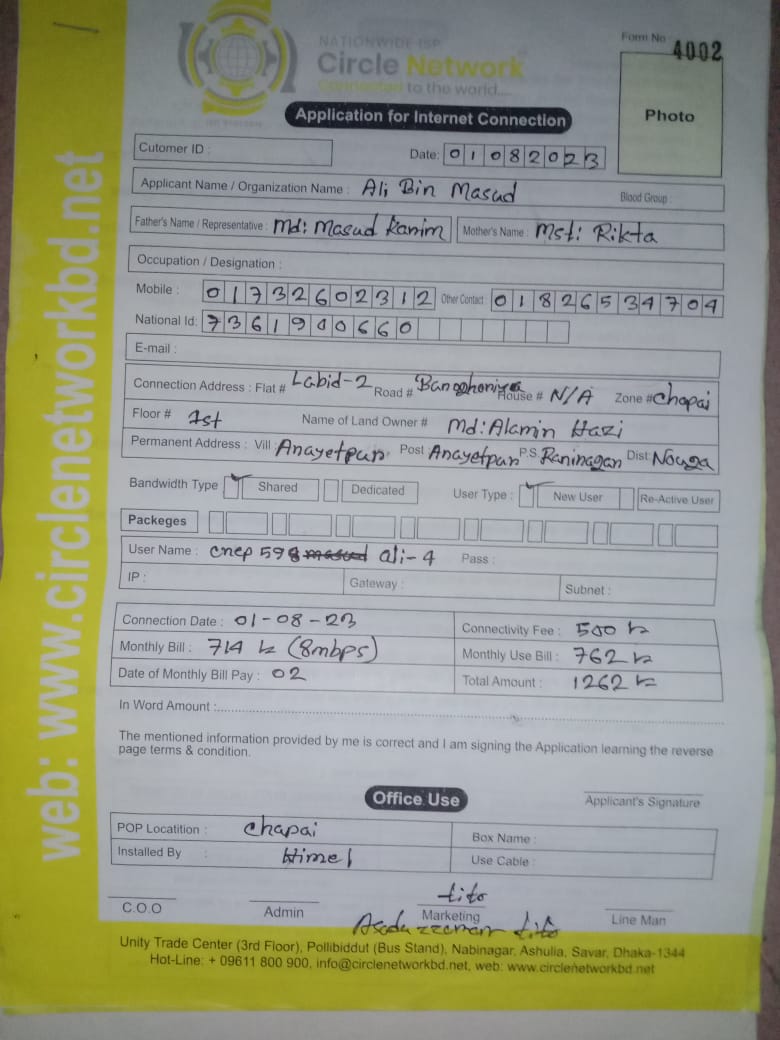 NATIONWIDE ISP
Circle Network
Connected to the world....
Form No 4002
Photo
Application for Internet Connection
Cutomer ID :
Date: 01082023
Applicant Name / Organization Name : Ali Bin Masud Blood Group :
Father's Name / Representative : Md: Masud Karim Mother's Name : Mst: Rikta
Occupation / Designation :
Mobile : 01732602312 Other Contact : 01826534704
National Id: 7361940660
E-mail :
Connection Address : Flat # Labid-2 Road # House # N/A Zone # Chapai
Floor # 1st Name of Land Owner # Md: Alamin Hazi
Permanent Address : Vill : Anayetpur Post Anayetpur P.S. Raninagar Dist: Nouga
Bandwidth Type Shared Dedicated User Type : New User Re-Active User
Packeges
User Name : cnep 598 ali-4 Pass :
IP : Gateway : Subnet :
Connection Date : 01-08-23 Connectivity Fee : 500
Monthly Bill : 714 (8mbps) Monthly Use Bill : 762
Date of Monthly Bill Pay : 02 Total Amount : 1262
In Word Amount :
The mentioned information provided by me is correct and I am signing the Application learning the reverse
page terms & condition.
Applicant's Signature
Office Use
POP Locatition : Chapai Box Name :
Installed By : Himel Use Cable :
tito
C.O.O Admin Marketing Line Man
Asaduzzaman tito
Unity Trade Center (3rd Floor), Pollibiddut (Bus Stand), Nabinagar, Ashulia, Savar, Dhaka-1344
Hot-Line: + 09611 800 900, info@circlenetworkbd.net, web: www.circlenetworkbd.net
web: www.circlenetworkbd.net